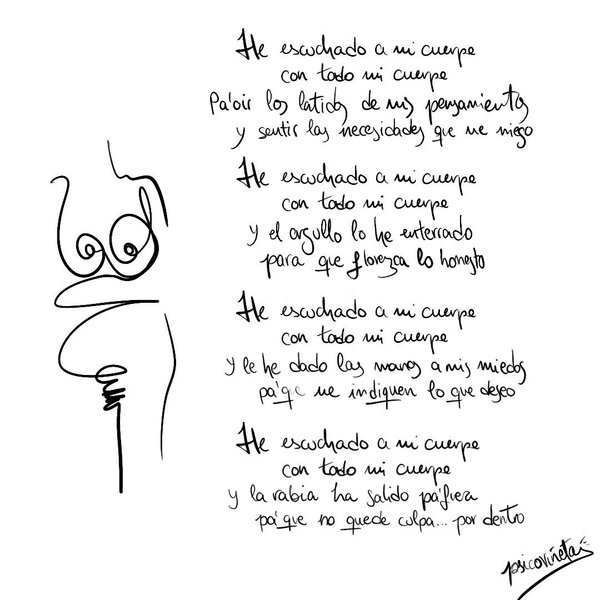 He escuchado a mi cuerpo
con todo mi cuerpo
Pa'oir los latidos de mis pensamientos
y sentir las necesidades que me niego
He escuchado a mi cuerpo
con todo mi cuerpo
y el orgullo lo he enterrado
para que florezca lo honesto
He escuchado a mi cuerpo
con todo mi cuerpo
y le he dado las manos a mis miedos
pa'que me indiquen lo que deseo
He escuchado a mi cuerpo
con todo mi cuerpo
y la rabia ha salido pa'fuera
pa'que no quede culpa... por dentro
psicoviñetas